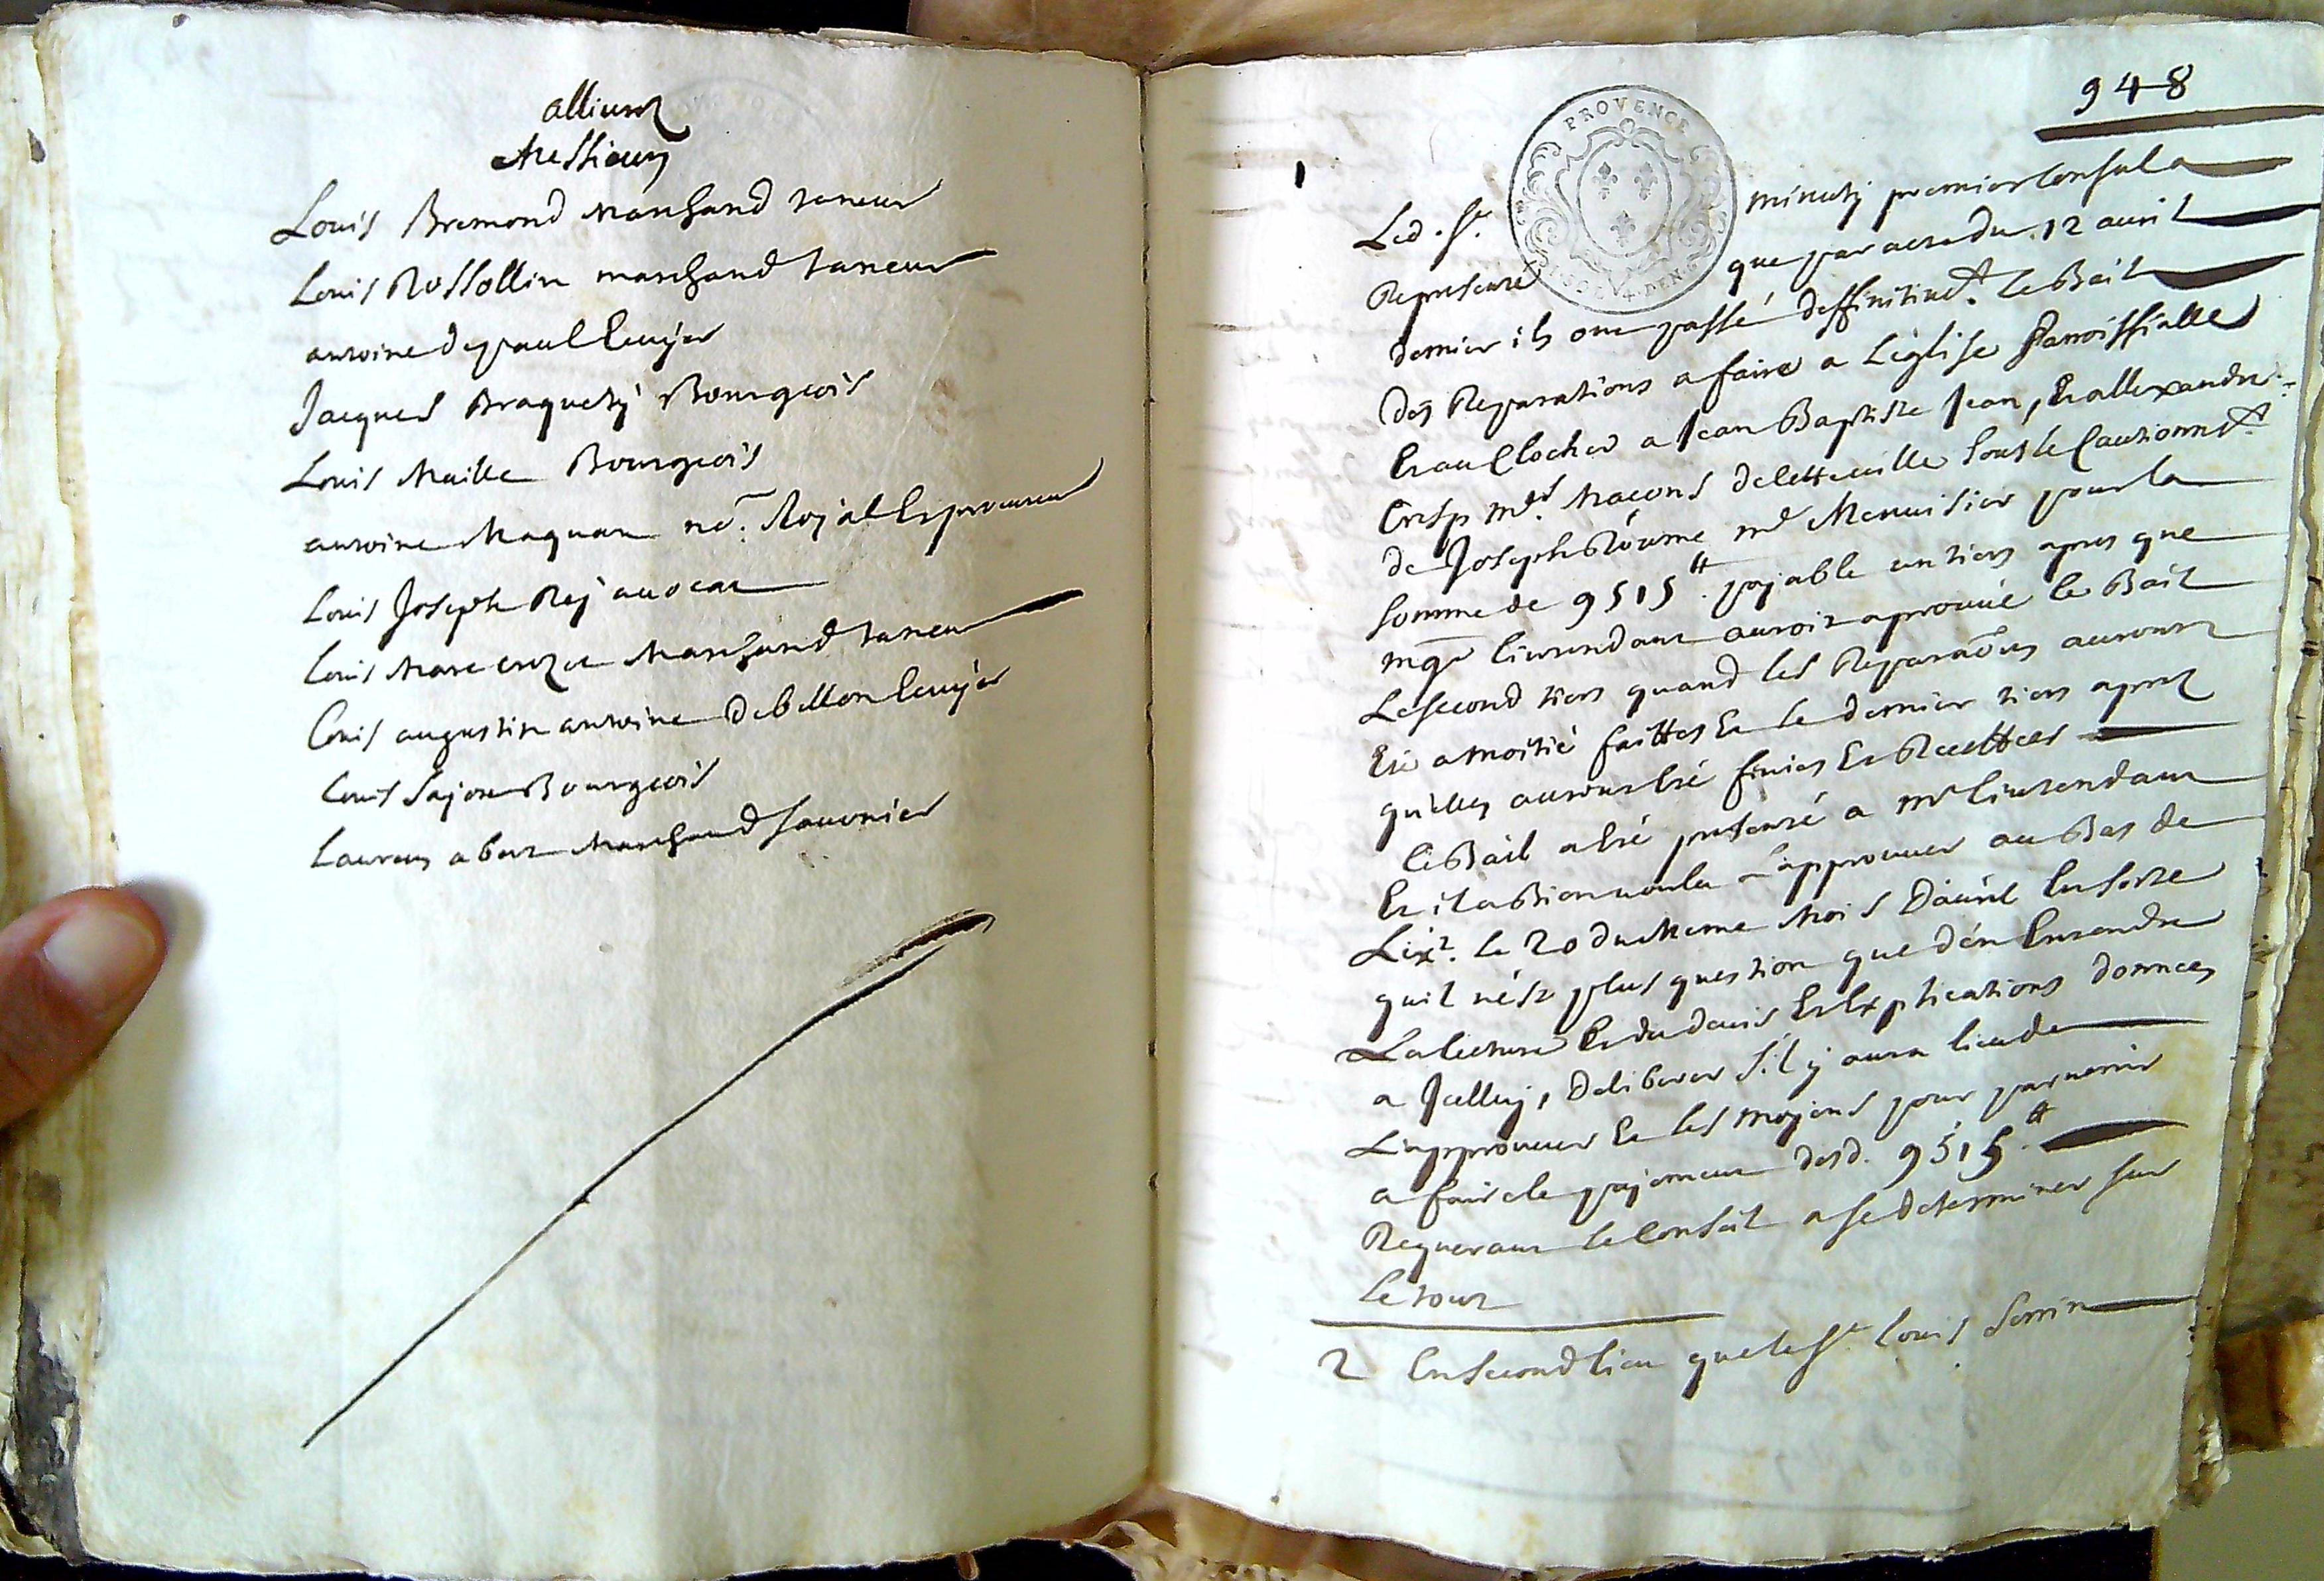 allieurs
Messieurs
Louis Bremond Marchand taneur
Louis Rossollin marchand taneur
antoine depaul Ecuyer
Jacques Braquety Bourgeois
Louis Maille Bourgeois
antoine Maquan no.re Royal Et procureur
Louis Joseph Rey auocat
Louis Marc crozet Marchand taneur
Louis augustin antoine debellon Ecuyer
Louis Bourgeois
Laurens abert Marchand sauonier
948
PROVENCE
4 DEN
1 Led. Sr. minuty premier Consul a
Representé que par acte du 12 auril
dernier ils ont passé deffinitiuet. le Bail
des Reparations a faire a L'eglise Parroissialle
Et au Clocher a Jean Baptiste Jean, Et allexandre
Crisp mes. Macons de cette uille sous le Cautionnet.
de Joseph Roume me Menuisier pour la
somme de 9515 tt. payable un tiers apres que
mgr L'intendant auroit aprouué le Bail
Le second tiers quand les Reparaōns auront
Eté a Moitié faittes Et le dernier tiers apres
qu'elles auront Eté finies Et Recettées
Le Bail a Eté presenté a Mr L'intendant
Et il a Bien uoulu L'approuuer au Bas de
L'ext. le 20 du Meme Mois D'auril En sorte
quil nést plus question que d'en Entendre
La lecture Et du deuis Et Explications donnees
a Jcelluy, Deliberer S'il y aura lieu de
L'approuuer Et les moyens pour paruenir
a faire le payement desd. 9515 tt
Requerant le Conseil a se determiner sur
le tout
2 En second lieu que le Sr Louis Serrin